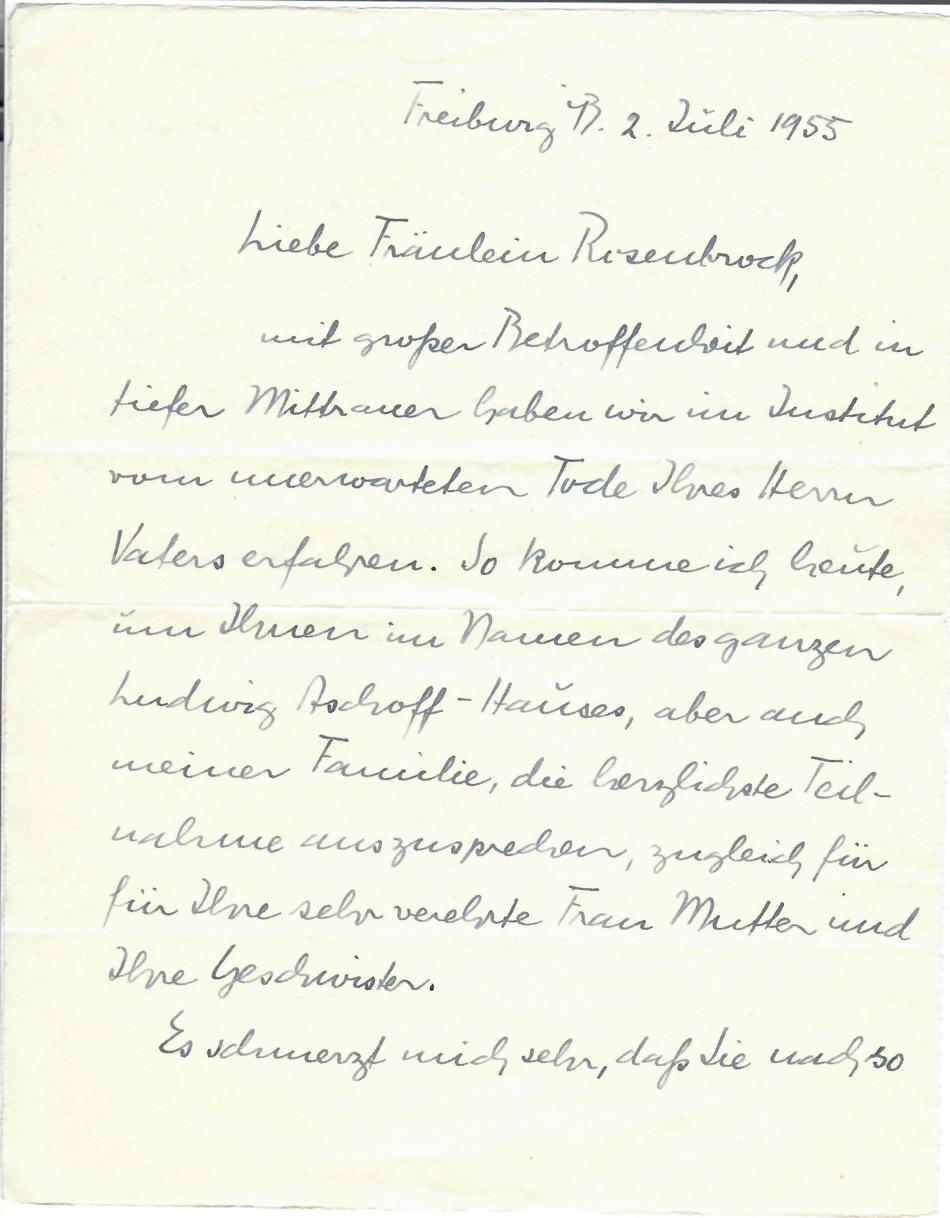 Freiburg B. 2. Juli 1955
Liebe Fräulein Rosenbrock,
mit großer Betroffenheit und in
tiefer Mittrauer haben wir im Institut
vom unerwarteten Tode Ihres Herrn
Vaters erfahren. So komme ich heute,
um Ihnen im Namen des ganzen
Ludwig Aschoff-Hauses, aber auch
meiner Familie, die herzlichste Teil-
nahme auszusprechen, zugleich für
für Ihre sehr verehrte Frau Mutter und
Ihre Geschwister.
Es schmerzt mich sehr, daß Sie nach so